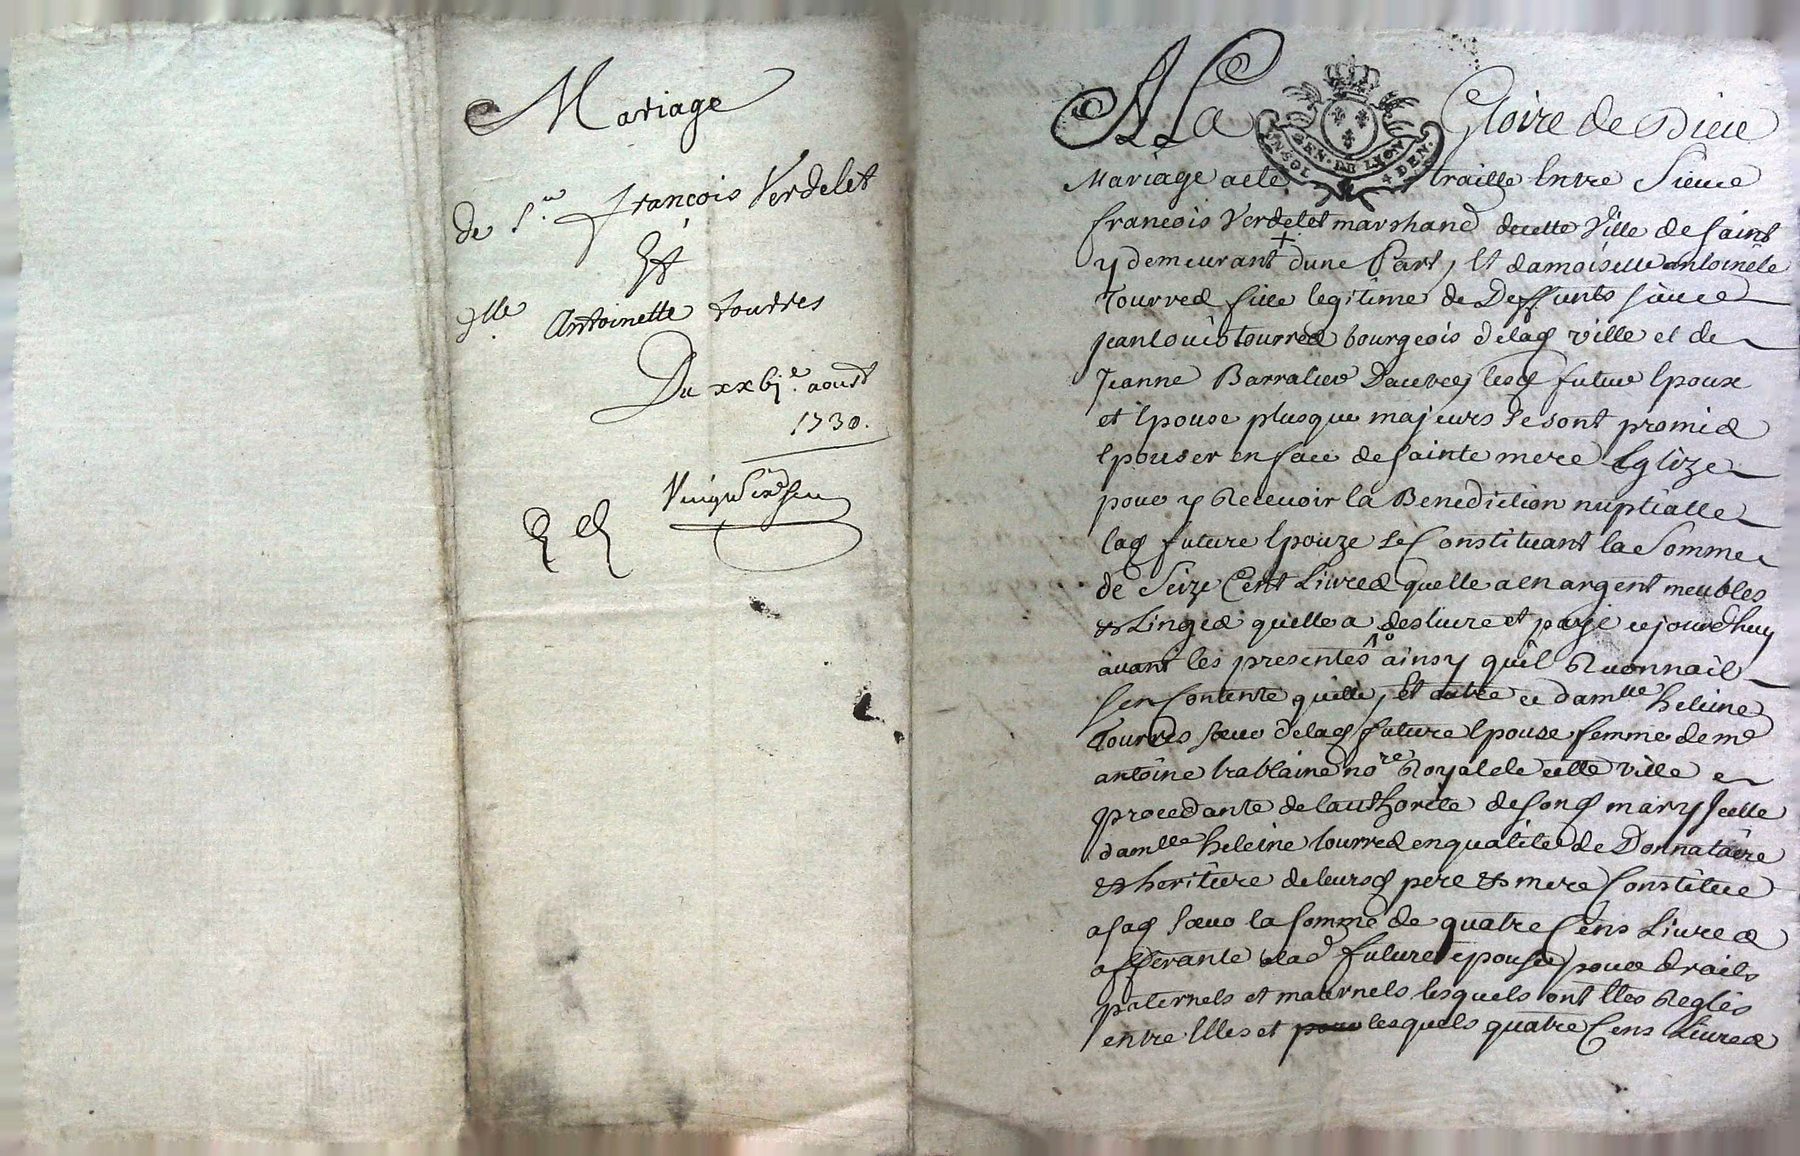 Mariage
de Sr. françois Verdelet
Et
Dlle. Antoinette tourres
Du xxbje. aoust
1730.
A La Gloire de Dieu
GEN. DE LYON
4 DEN.
Mariage a ete traitté Entre Sieur
françois Verdelet marchand decette Ville de Saint
y demeurant dune Part, Et damoiselle antoinete
Tourres fille legitime de Deffunts sieur
jean louis tourres bourgeois delad ville et de
Jeanne Barralier lesd futur Epoux
et Epouse plusque majeurs se sont promis
Epouser en face de sainte mere Eglize
pour y Recevoir la Benediction nuptialle
lad future Epouze se Constituant la Somme
de Seize Cent Livres quelle a en argent meubles
& Linges quelle a deslivré et payé cejourdhuy
avant les presentes ainsy quil Reconnait
sen Contente quitte, et outre ce damlle heleine
Tourres sœur delad future Epouse femme de me
antoine nore Royal de cette ville
procedante de lauthorité de sond mary Icelle
damlle heleine tourres enqualité de Donnataire
& heritiere de leursd pere & mere Constitue
a sad sœur la somme de quatre Cens Livres
afferante a lad future epouse pour droits
paternels et maternels lesquels ont Etes Reglés
entre Elles et pour lesquels quatre Cens Livres